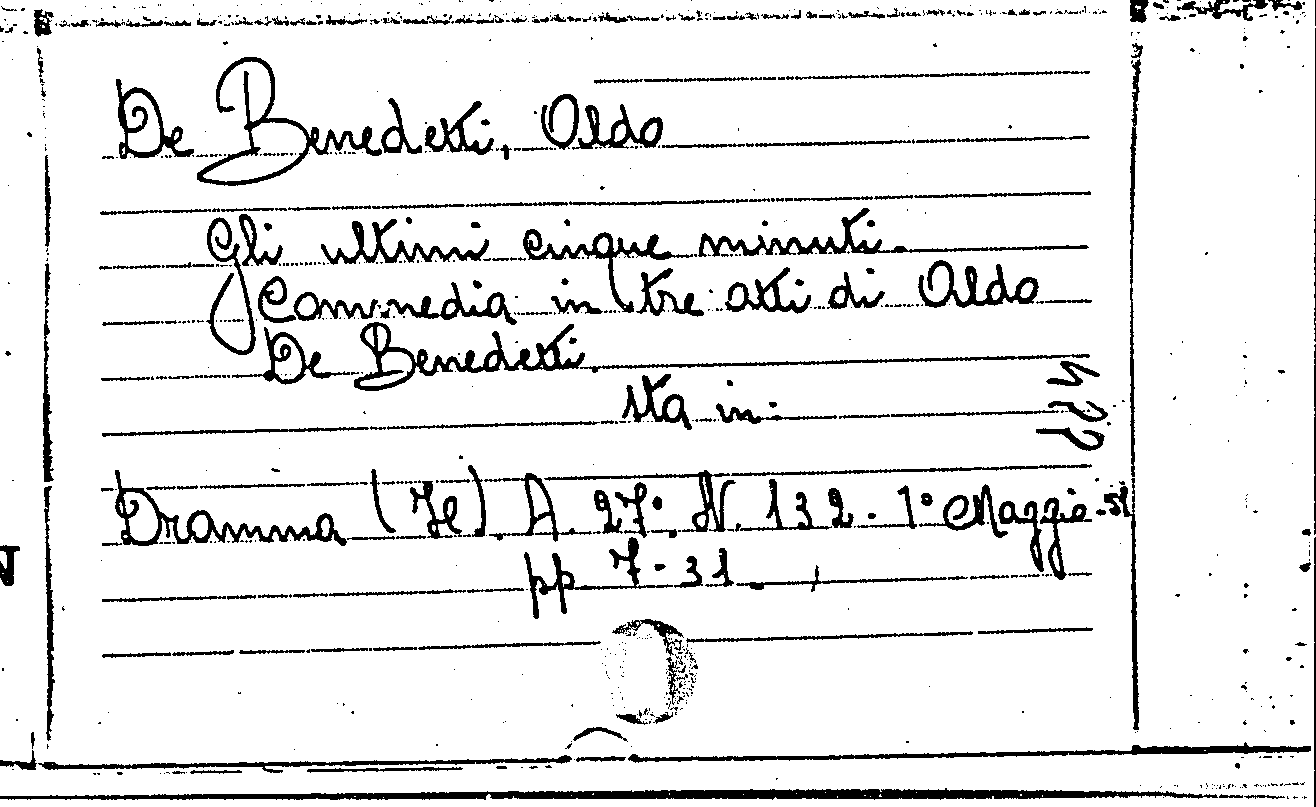 De Benedetti, Aldo
Gli ultimi cinque minuti.
Commedia in tre atti di Aldo
De Benedetti.
sta in:
Dramma (Il). A. 27° N. 132 - 1° Maggio - 51
pp. 7-31 -